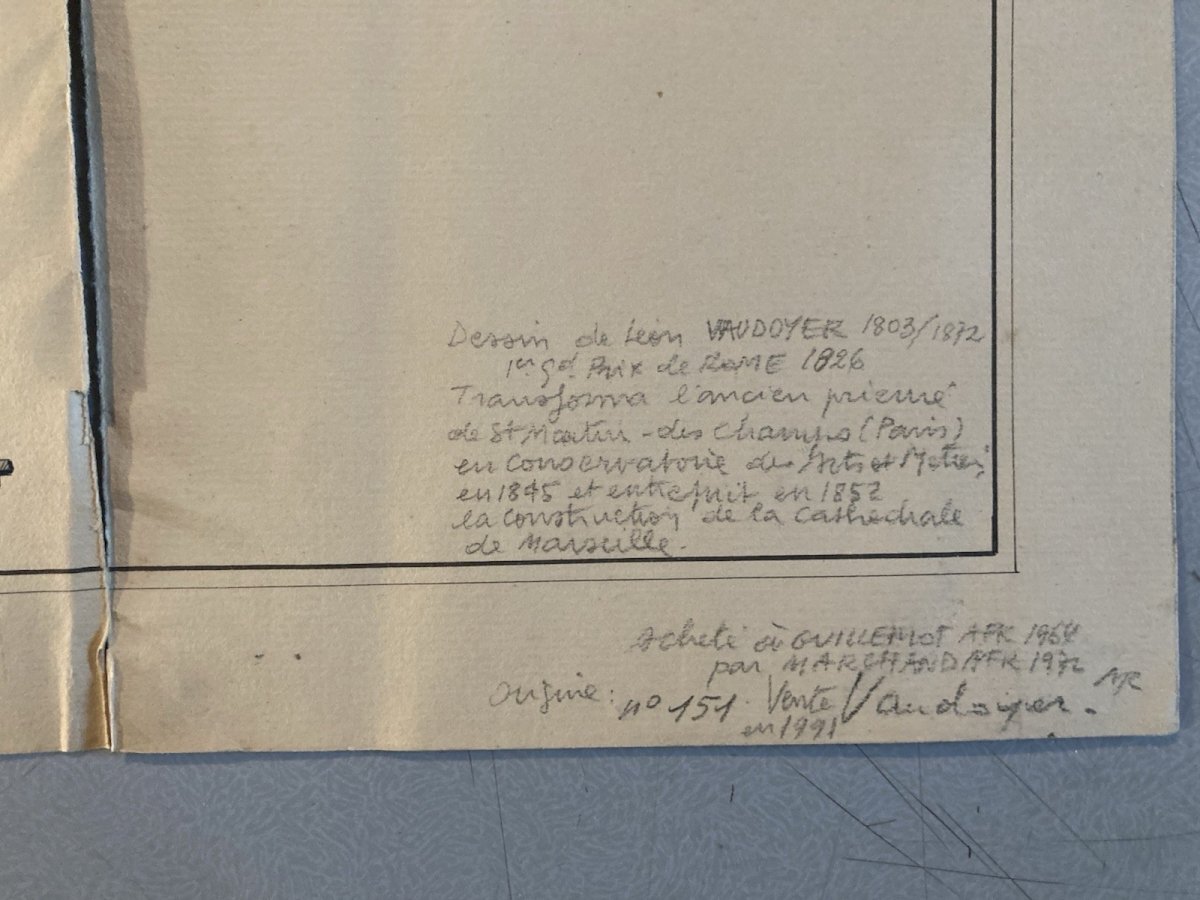 Dessin de Léon VAUDOYER 1803/1872
1er gd. Prix de ROME 1826
Transforma l'ancien prieuré
de St Martin-des Champs (Paris)
en Conservatoire des Arts et Métiers
en 1845 et entreprit en 1852
la construction de la Cathédrale
de Marseille.
Acheté à GUILLEMOT AFR 1964
par MARCHAND AFR 1972
Origine: no 151. Vente Vaudoyer.
en 1991